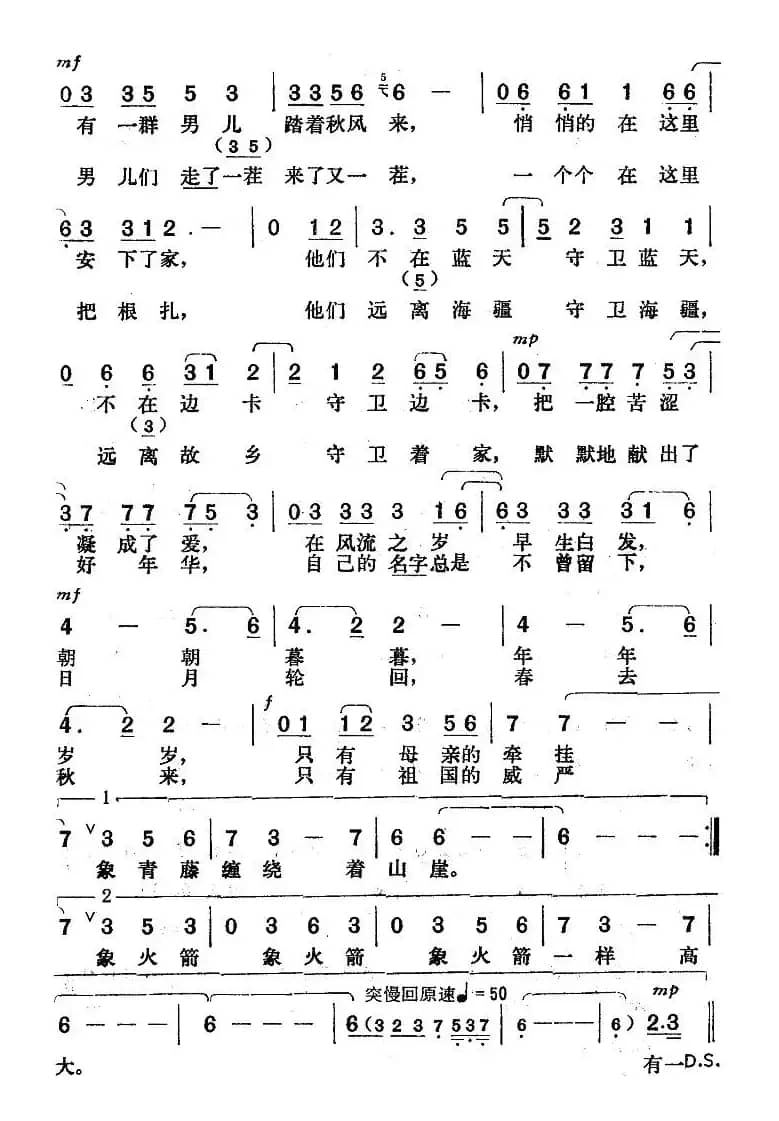 mf
0 3 3 5 5 3 | 3 3 5 6 5 6 — | 0 6 6 1 1 6 6 |
有 一群 男 儿 踏着秋风 来， 悄 悄的 在 这里
(3 5)
男 儿们 走了一茬 来了又一 茬， 一 个个 在 这里
6 3 3 1 2 . — | 0 1 2 | 3 . 3 5 5 | 5 2 3 1 1 |
安 下了家， 他们 不 在 蓝 天 守 卫蓝 天，
(5)
把 根 扎， 他们 远 离 海 疆 守 卫海 疆，
mp
0 6 6 3 1 2 | 2 1 2 6 5 6 | 0 7 7 7 7 5 3 |
不 在 边 卡 守 卫 边 卡， 把 一腔 苦 涩
(3)
远 离 故 乡 守 卫 着 家， 默 默地 献 出了
3 7 7 7 7 5 3 | 0 3 3 3 3 1 6 | 6 3 3 3 3 1 6 |
凝 成了 爱， 在 风流 之 岁 早 生白 发，
好 年 华， 自 己的 名字总是 不 曾留 下，
mf
4 — 5 . 6 | 4 . 2 2 — | 4 — 5 . 6 |
朝 朝 暮 暮， 年 年
日 月 轮 回， 春 去
f
4 . 2 2 — | 0 1 1 2 3 5 6 | 7 7 — — |
岁 岁， 只 有 母 亲的 牵 挂
秋 来， 只 有 祖 国的 威 严
1
7 ∨ 3 5 6 | 7 3 — 7 | 6 6 — — | 6 — — :‖
象 青 藤 缠 绕 着 山 崖。
2
7 ∨ 3 5 3 | 0 3 6 3 | 0 3 5 6 | 7 3 — 7 |
象 火 箭 象 火 箭 象 火 箭 一 样 高
突慢回原速♩=50 mp
6 — — — | 6 — — — | 6 (3 2 3 7 5 3 7 | 6 — — — | 6) 2 . 3 ‖
大。 有一D.S.